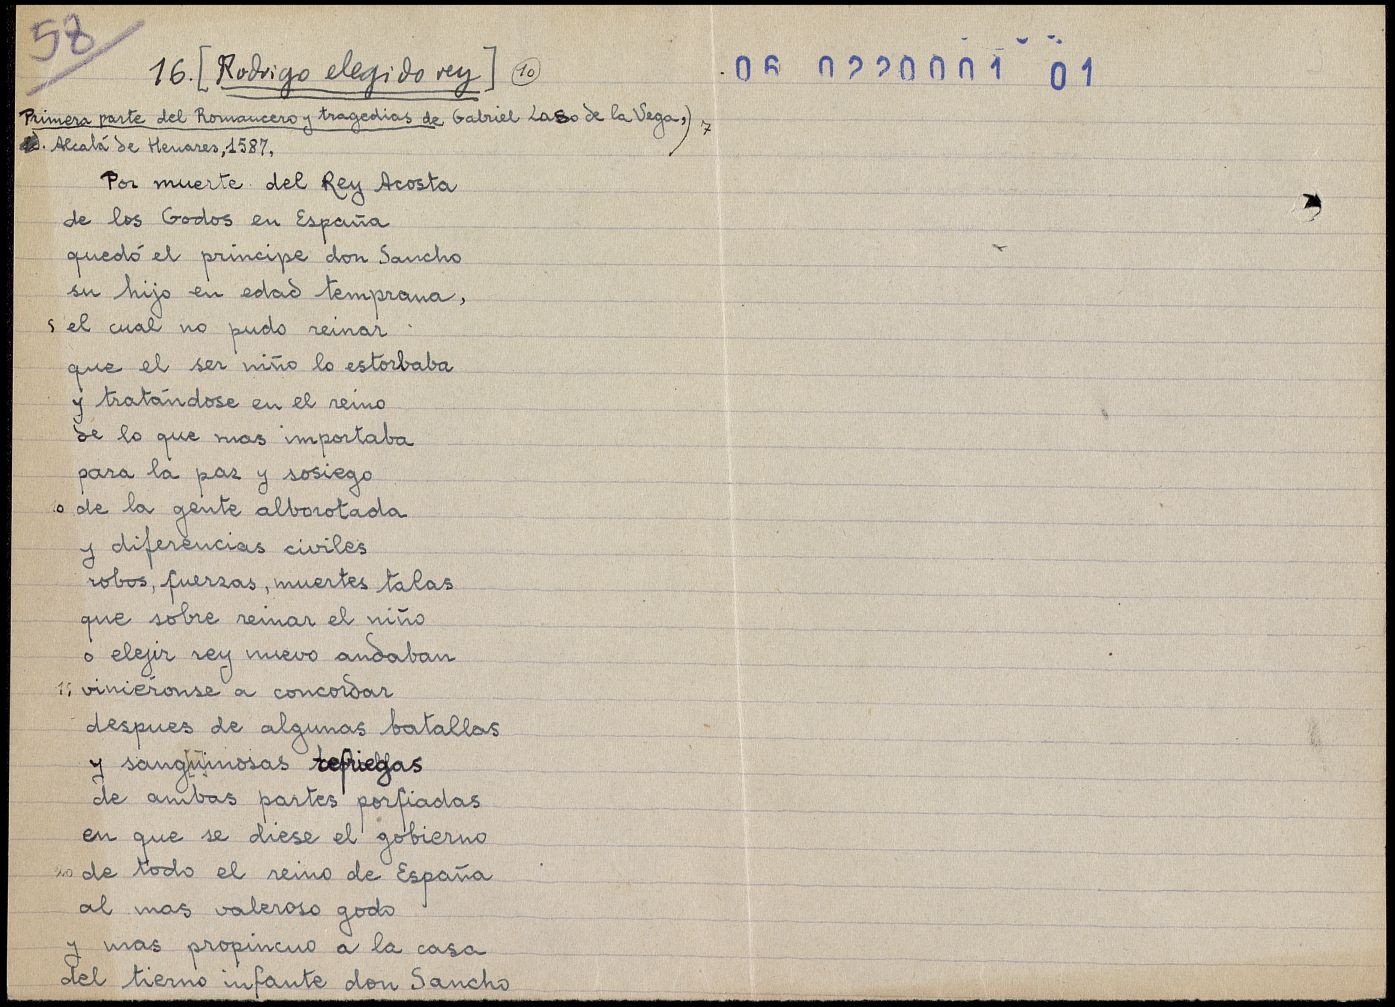 58
16. [Rodrigo elegido rey] (10)
06 0220001 01
Primera parte del Romancero y tragedias de Gabriel Laso de la Vega,) 7
Alcalá de Henares, 1587,
Por muerte del Rey Acosta
de los Godos en España
quedó el príncipe don Sancho
su hijo en edad temprana,
5 el cual no pudo reinar
que el ser niño lo estorbaba
y tratándose en el reino
de lo que mas importaba
para la paz y sosiego
10 de la gente alborotada
y diferencias civiles
robos, fuerzas, muertes talas
que sobre reinar el niño
o elejir rey nuevo andaban
15 viniéronse a concordar
despues de algunas batallas
y sang[ü]inosas refriegas
de ambas partes porfiadas
en que se diese el gobierno
20 de todo el reino de España
al mas valeroso godo
y mas propincuo a la casa
del tierno infante don Sancho